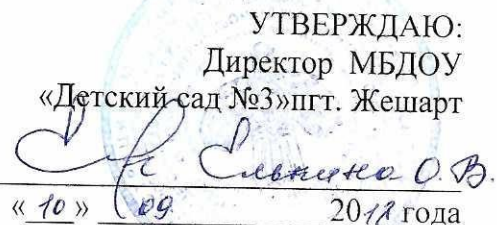 УТВЕРЖДАЮ:
Директор МБДОУ
«Детский сад №3»пгт. Жешарт
Елькина О.В.
« 10 » 09 2018 года